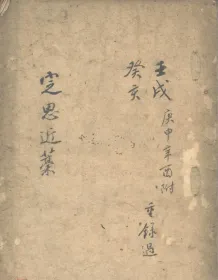 壬戌
癸亥
庚申辛酉附
重錄過
定思近藁